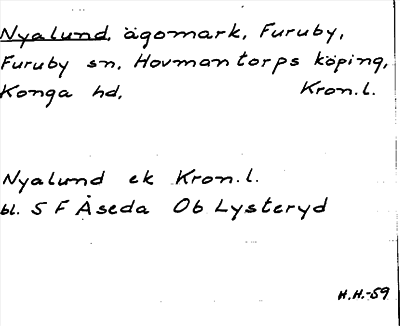 Nyalund, ägomark, Furuby,
Furuby sn, Hovmantorps köping,
Konga hd, Kron.l.
Nyalund ek Kron.l.
bl. 5 F Åseda Ob Lysteryd
H.H.-59